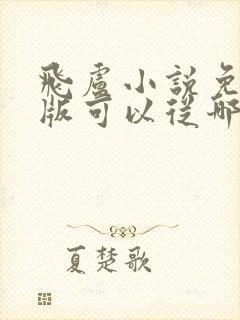 飛盧小說免
版可以從哪
夏楚歌